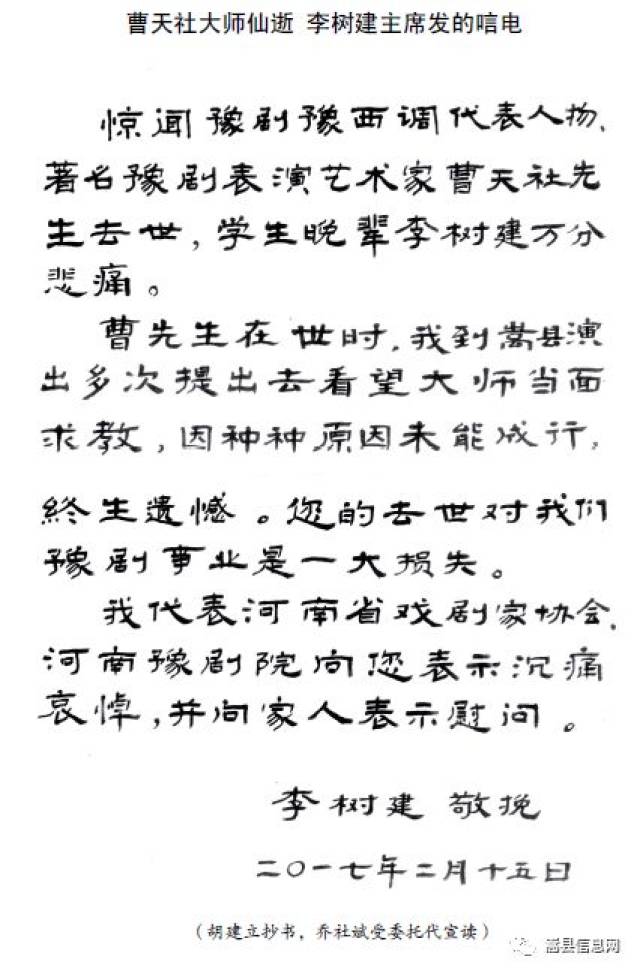 曹天社大师仙逝 李树建主席发的唁电
惊闻豫剧豫西调代表人物、
著名豫剧表演艺术家曹天社先
生去世，学生晚辈李树建万分
悲痛。
曹先生在世时，我到嵩县演
出多次提出去看望大师当面
求教，因种种原因未能成行，
终生遗憾。您的去世对我们
豫剧事业是一大损失。
我代表河南省戏剧家协会、
河南豫剧院向您表示沉痛
哀悼，并向家人表示慰问。
李树建 敬挽
二〇一七年二月十五日
（胡建立抄书，乔社斌受委托代宣读）
嵩县信息网